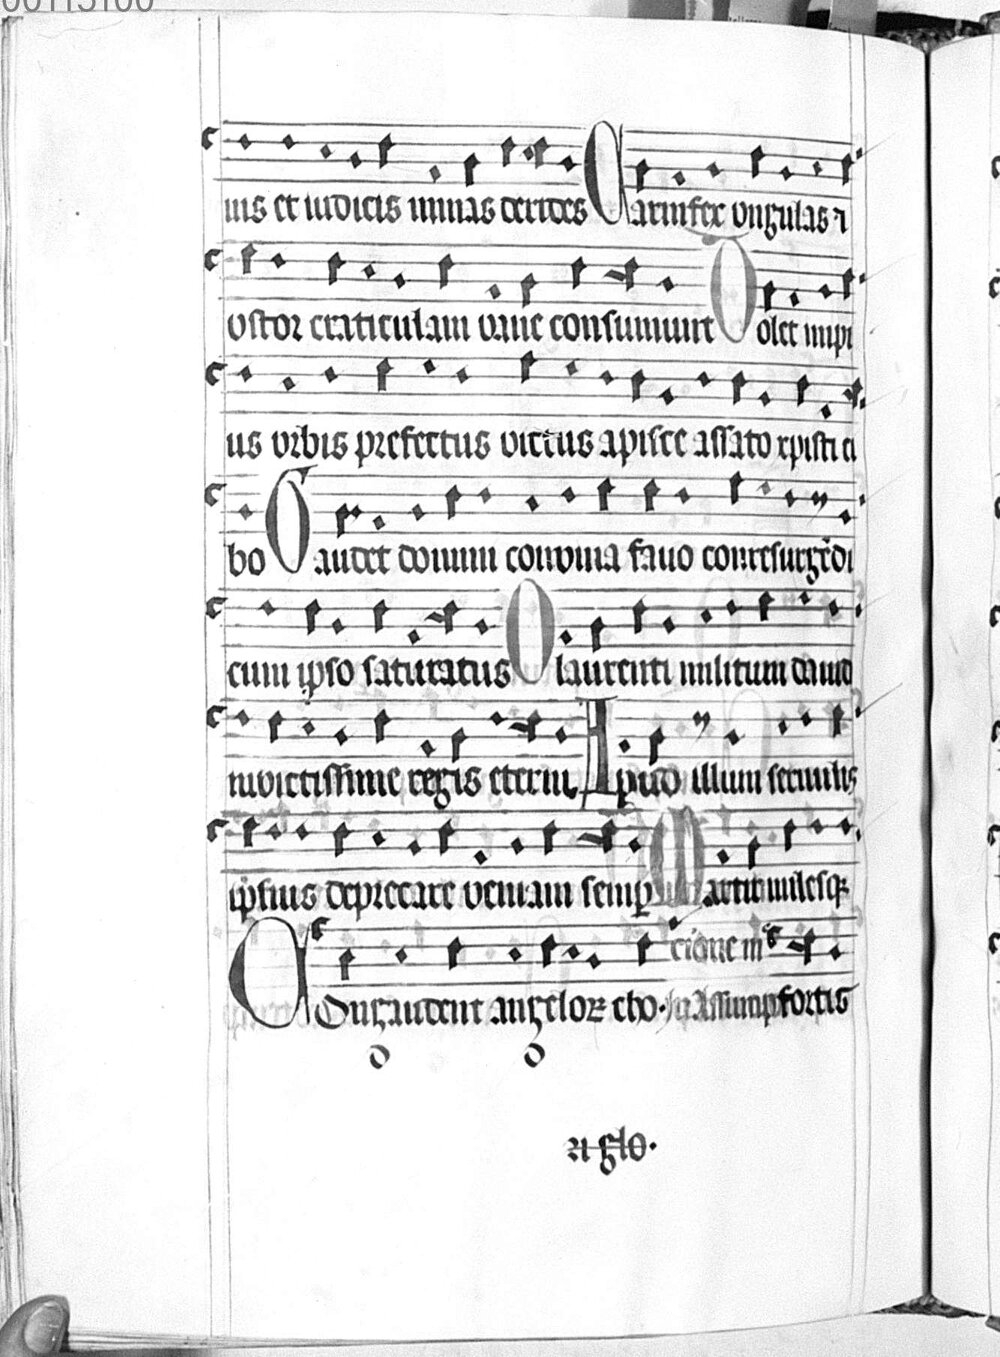 00115100
ius et iudicis minas derides Carnifex ungulas ⁊
ostor craticulam urne consumunt Dolet impi
us urbis prefectus victus a pisce assato xpisti ci
bo Gaudet domini conviva favo conresurgēdi
cum ipso saturatus O laurenti militum david
invictissime regis eterni. Apud illum servulis
ipsius deprecare veniam semꝑ Martir milesqꝫ
cione in
COngaudent angeloꝝ cho. In assump fortis
ri glo.